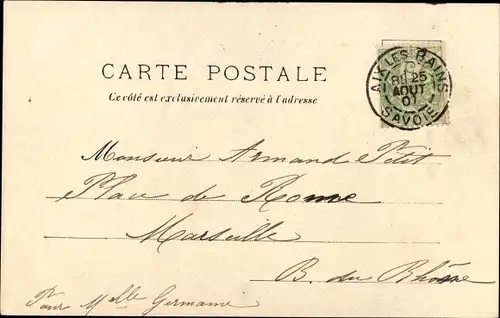 CARTE POSTALE
Ce côté est exclusivement réservé à l'adresse
AIX-LES-BAINS
25
AOUT
01
SAVOIE
Monsieur Armand Petit
Place de Rome
Marseille
B. du Rhône
Pour Melle Germaine